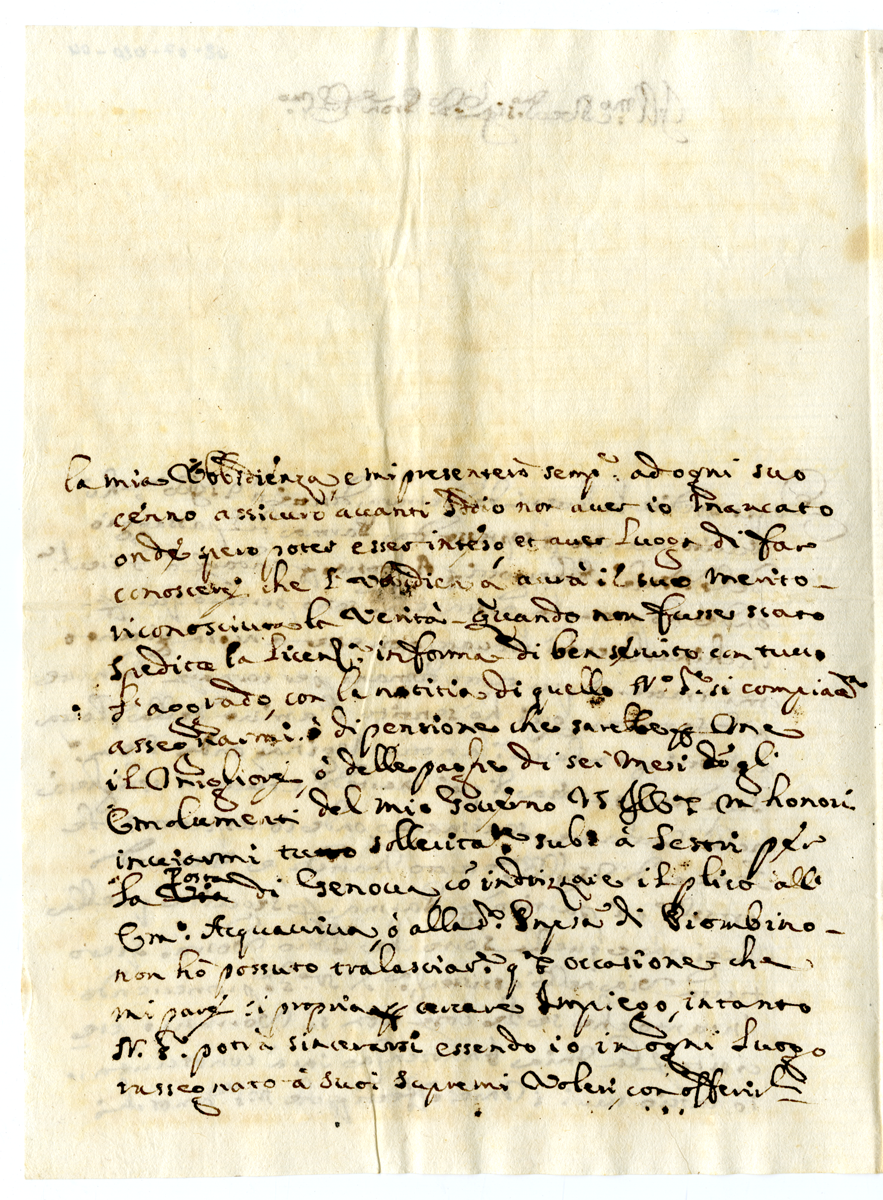 la mia Ubbidienza, e mi presenterò semp.e ad ogni suo
cenno assicurò avanti Iddio non aver io mancato
onde spero poter esser inteso, et aver luogo di far
conoscere che l'ubbidien à avrà il suo merito
riconosciuta la Verità. Quando non fusse stato
spedita la licenza in forma di ben servito con tutto
l'aggrado, con la notitia di quello V. E. si compiacerà
assegnarmi, ò di pensione che sarebbe p me
il migliore, ò delle paghe di sei mesi dogl'
Emolumenti del mio Governo m'honori
inviarmi tutto sollecitam.te sub.o à Sestri per
la Posta di Genova, cò indrizzare il plico all
Em.o Acquaviva, ò alla S.ra Pnpsa di Piombino
non hò possuto tralasciar q.ta occasione che
mi pare sì propria cercare Impiego, intanto
V. E. potrà sincerarsi essendo io in ogni luogo
rassegnato à suoi supremi Voleri, con offerirle